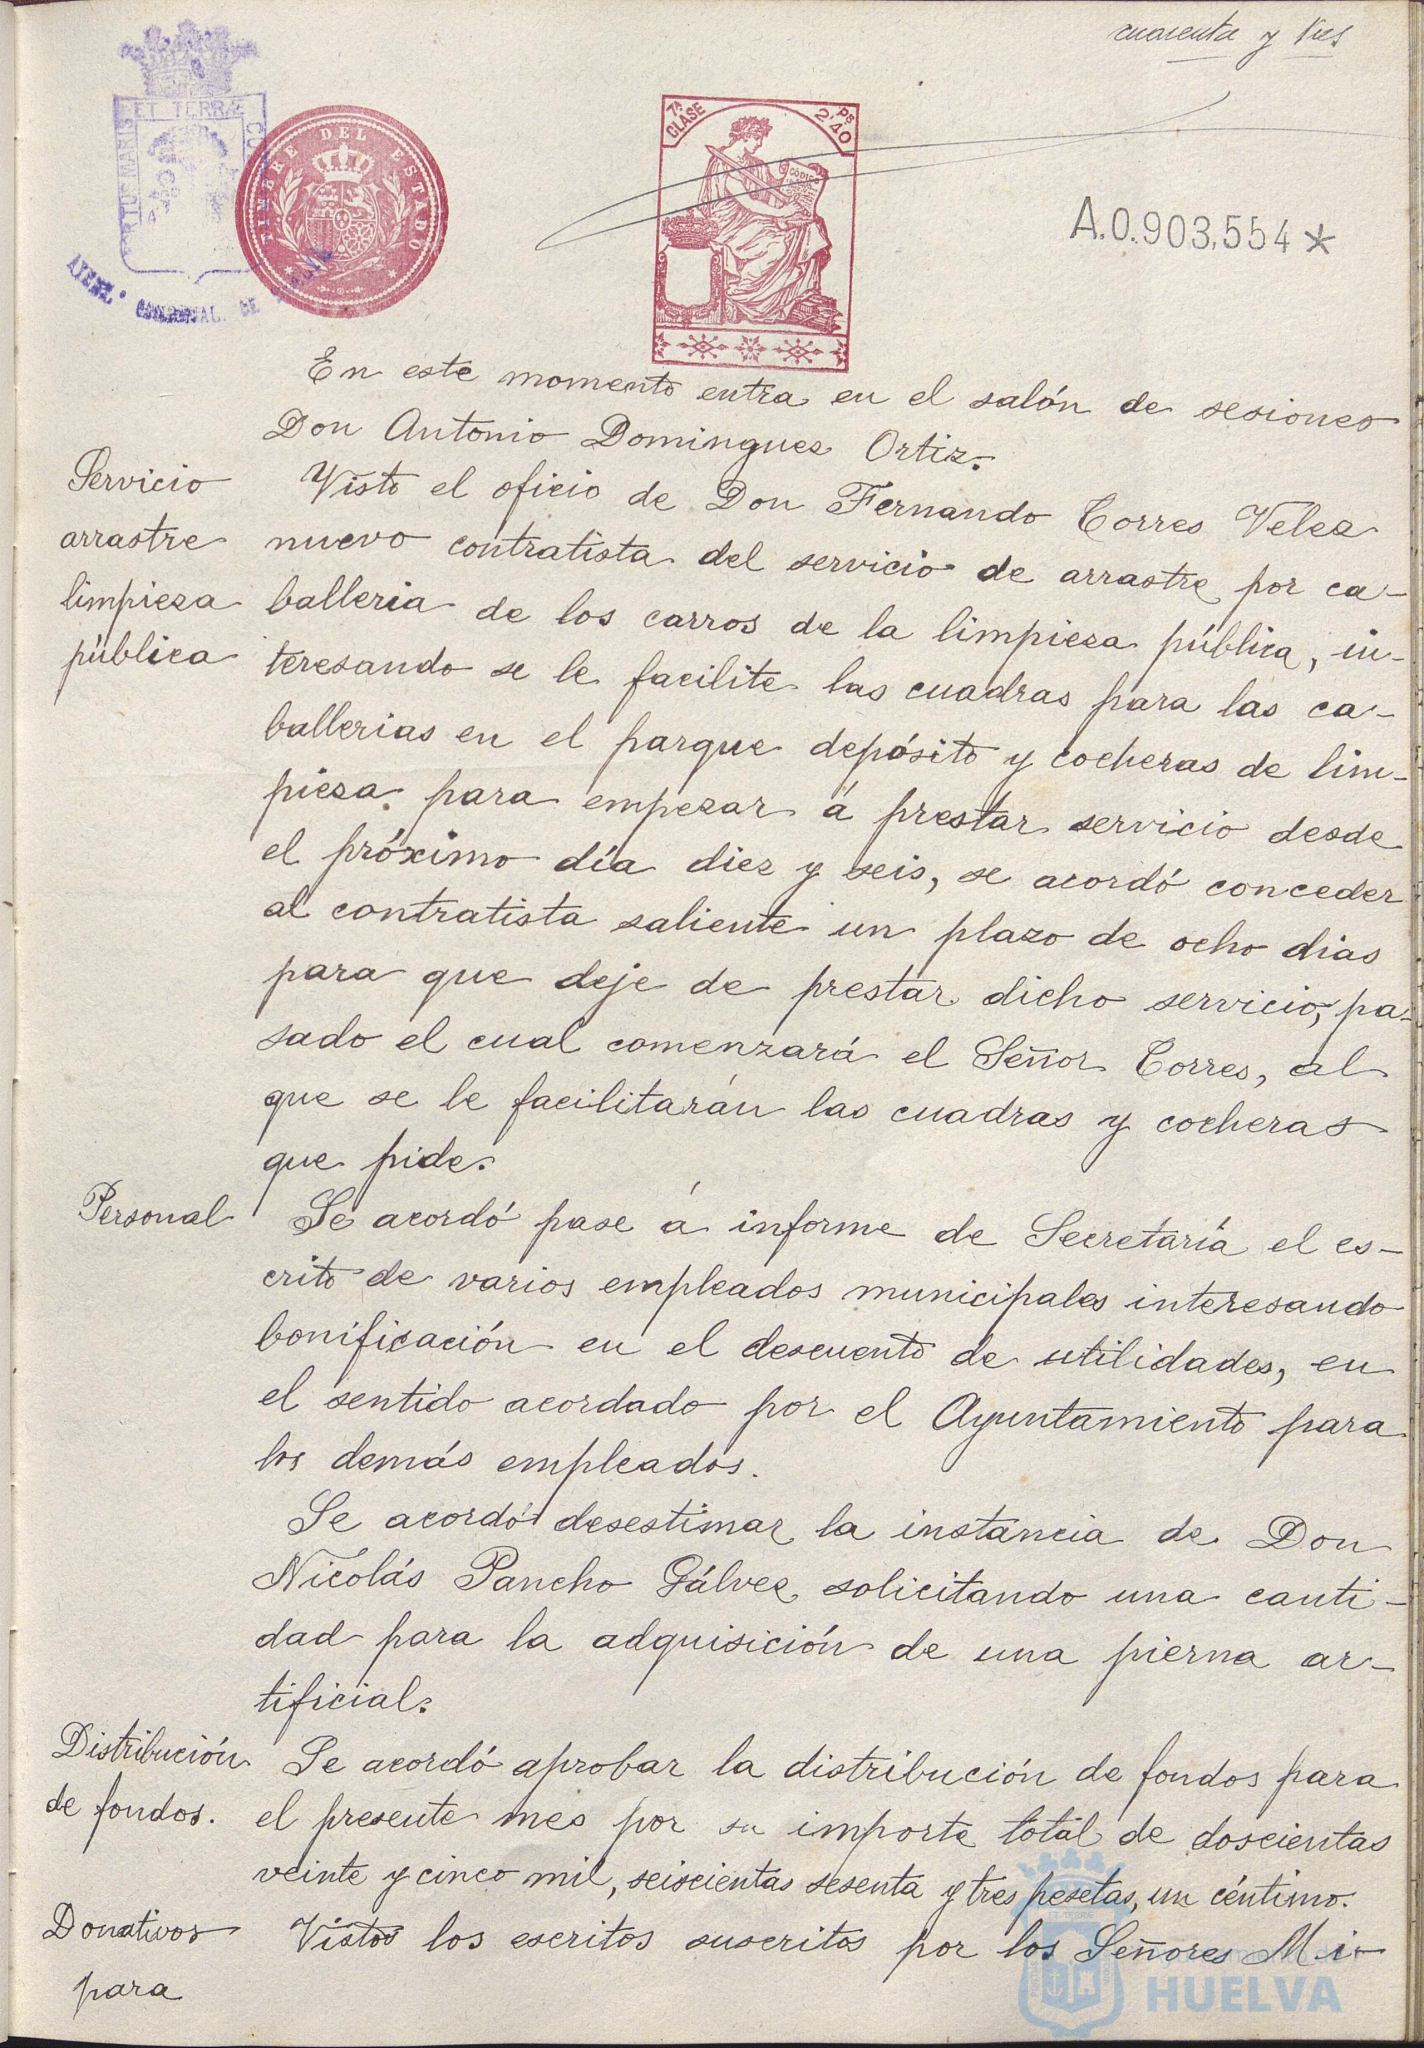 cuarenta y tres
ET TERRÆ
TIMBRE DEL ESTADO
7ª CLASE
2'40 Ps
CÓDIGO
A.0.903,554*
En este momento entra en el salón de sesiones
Don Antonio Dominguez Ortiz.
Servicio
arrastre
limpieza
pública
Visto el oficio de Don Fernando Torres Velez
nuevo contratista del servicio de arrastre por ca-
balleria de los carros de la limpieza pública, in-
teresando se le facilite las cuadras para las ca-
ballerias en el parque depósito y cocheras de lim-
pieza para empezar á prestar servicio desde
el próximo día diez y seis, se acordó conceder
al contratista saliente un plazo de ocho dias
para que deje de prestar dicho servicio, pa-
sado el cual comenzará el Señor Torres, al
que se le facilitarán las cuadras y cocheras
que pide.
Personal
Se acordó pase á informe de Secretaría el es-
crito de varios empleados municipales interesando
bonificación en el descuento de utilidades, en
el sentido acordado por el Ayuntamiento para
los demás empleados.
Se acordó desestimar la instancia de Don
Nicolás Pancho Gálvez solicitando una canti-
dad para la adquisición de una pierna ar-
tificial.
Distribución
de fondos.
Se acordó aprobar la distribución de fondos para
el presente mes por su importe total de doscientas
veinte y cinco mil, seiscientas sesenta y tres pesetas, un céntimo.
Donativos
para
Vistos los escritos suscritos por los Señores Mi-
HUELVA